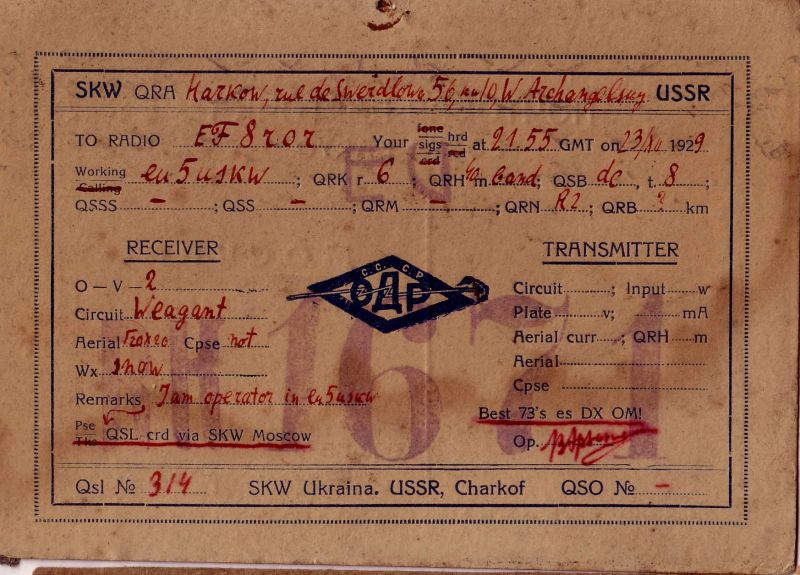 SKW QRA Harkow, rue de Swerdlowa 56, 10, W. Archangelsky USSR
TO RADIO EF8ror Your fone sigs crd hrd rcd at 21.55 GMT on 23/XII 1929
Working Calling eu5uskw; QRK r 6; QRH 40 m band; QSB dc, t. 8;
QSSS –; QSS –; QRM –; QRN R2; QRB ? km
RECEIVER
O – V – 2
Circuit Weagant
Aerial Cpse not
Wx snow
Remarks I am operator in eu5uskw
Pse Tks QSL crd via SKW Moscow
С.С.С.Р.
ОДР
TRANSMITTER
Circuit; Input w
Plate v; mA
Aerial curr; QRH m
Aerial
Cpse
Best 73's es DX OM!
Op.
1671
Qsl № 314 SKW Ukraina. USSR, Charkof QSO № –